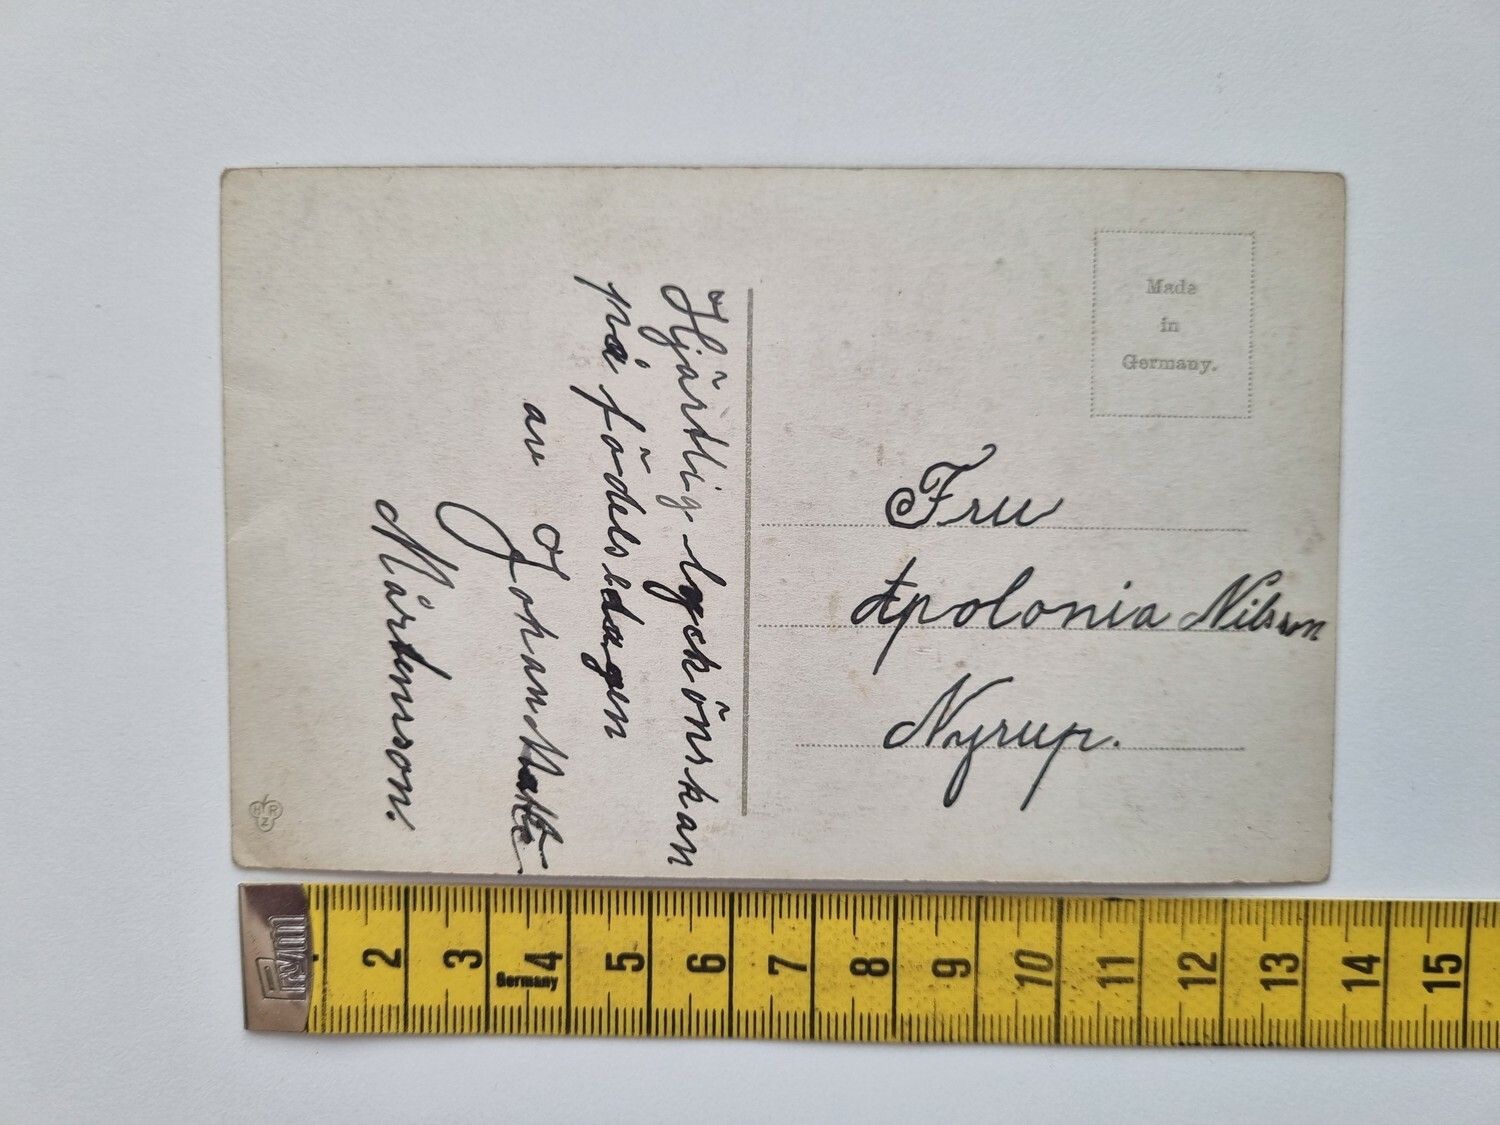 Hjärtlig lyckönskan
på födelsedagen
av
Johan Matts
Mårtensson.
Made
in
Germany.
Fru
Apolonia Nilsson
Nyrup.
HRZ
Prym
2 3 4 5 6 7 8 9 10 11 12 13 14 15
Germany